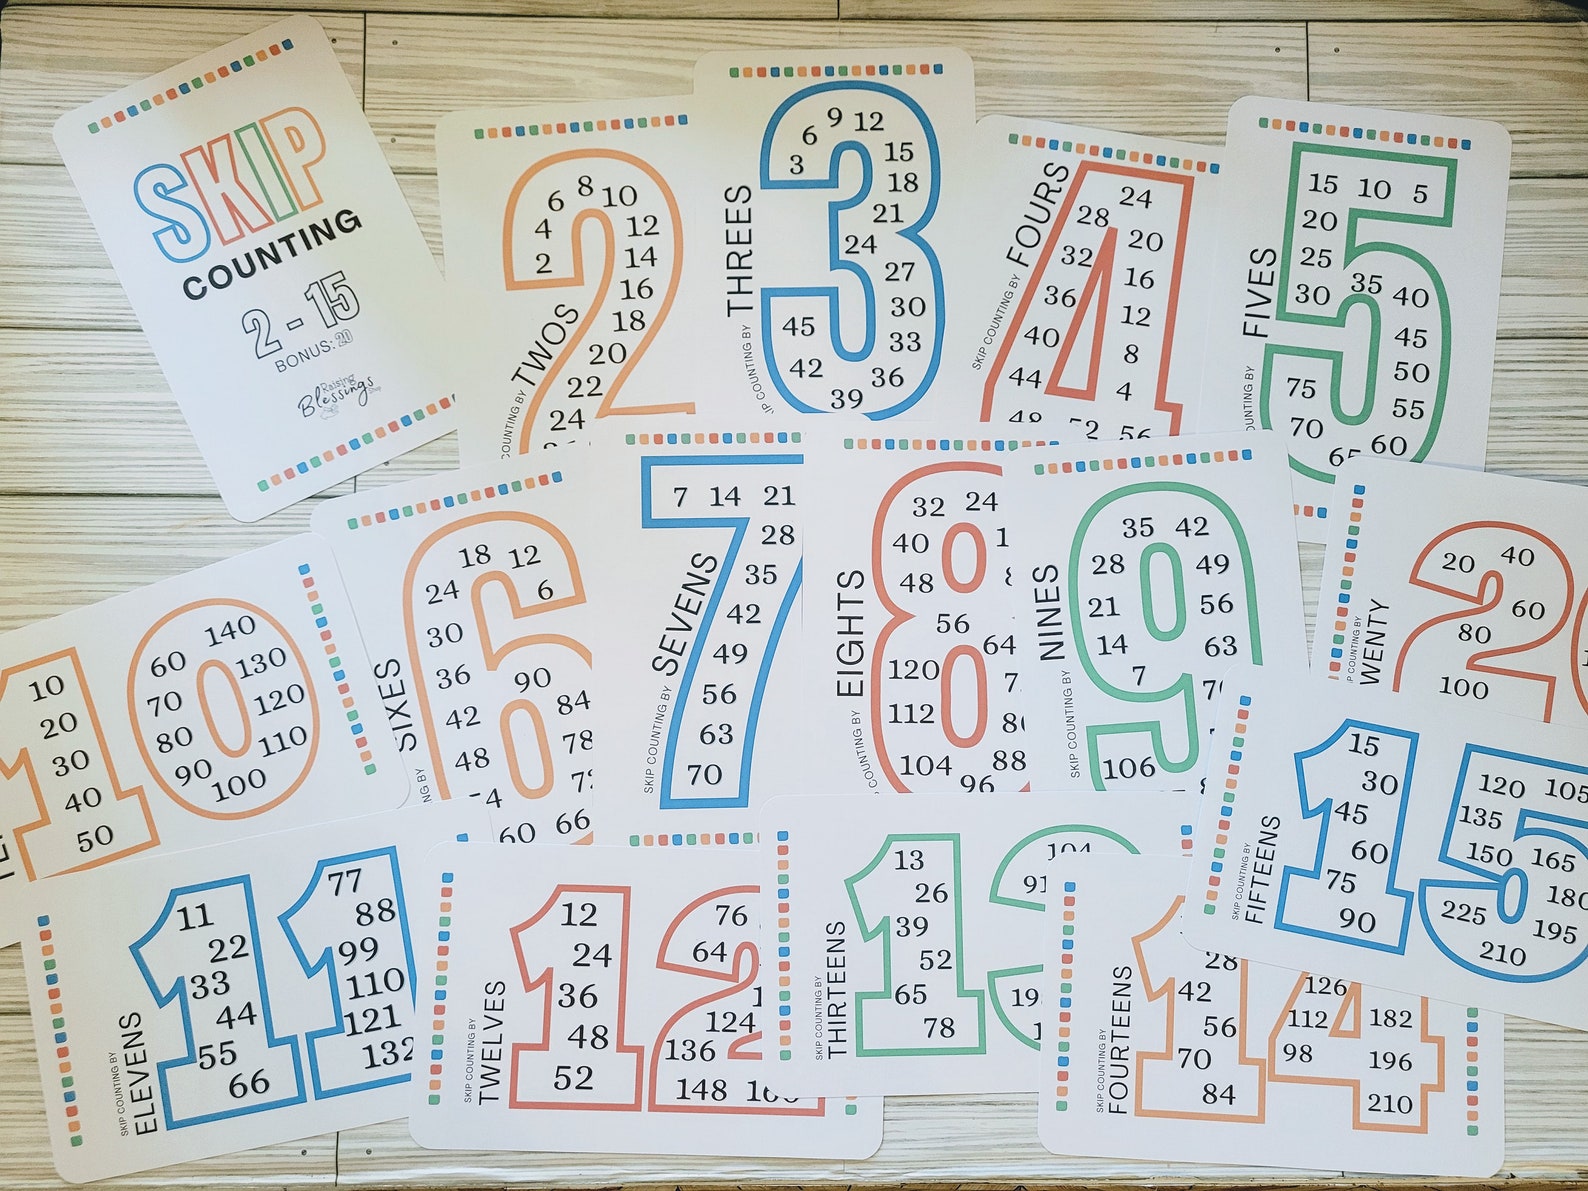 SKIP
COUNTING
2 - 15
BONUS: 20
Raising
Blessings
COUNTING BY TWOS
2
4
6
8
10
12
14
16
18
20
22
24
COUNTING BY THREES
3
6
9
12
15
18
21
24
27
30
33
36
39
42
45
SKIP COUNTING BY FOURS
4
8
12
16
20
24
28
32
36
40
44
48
52
56
FIVES
5
10
15
20
25
30
35
40
45
50
55
60
65
70
75
10
20
30
40
50
60
70
80
90
100
110
120
130
140
SIXES
6
12
18
24
30
36
42
48
60
66
78
84
90
SKIP COUNTING BY SEVENS
7 14 21
28
35
42
49
56
63
70
COUNTING BY EIGHTS
24
32
40
48
56
64
88
96
104
112
120
SKIP COUNTING BY NINES
7
14
21
28
35
42
49
56
63
106
20
40
60
80
100
SKIP COUNTING BY ELEVENS
11
22
33
44
55
66
77
88
99
110
121
132
SKIP COUNTING BY TWELVES
12
24
36
48
52
64
76
124
136
148
SKIP COUNTING BY THIRTEENS
13
26
39
52
65
78
91
104
SKIP COUNTING BY FOURTEENS
28
42
56
70
84
98
112
126
182
196
210
SKIP COUNTING BY FIFTEENS
15
30
45
60
75
90
105
120
135
150
165
180
195
210
225